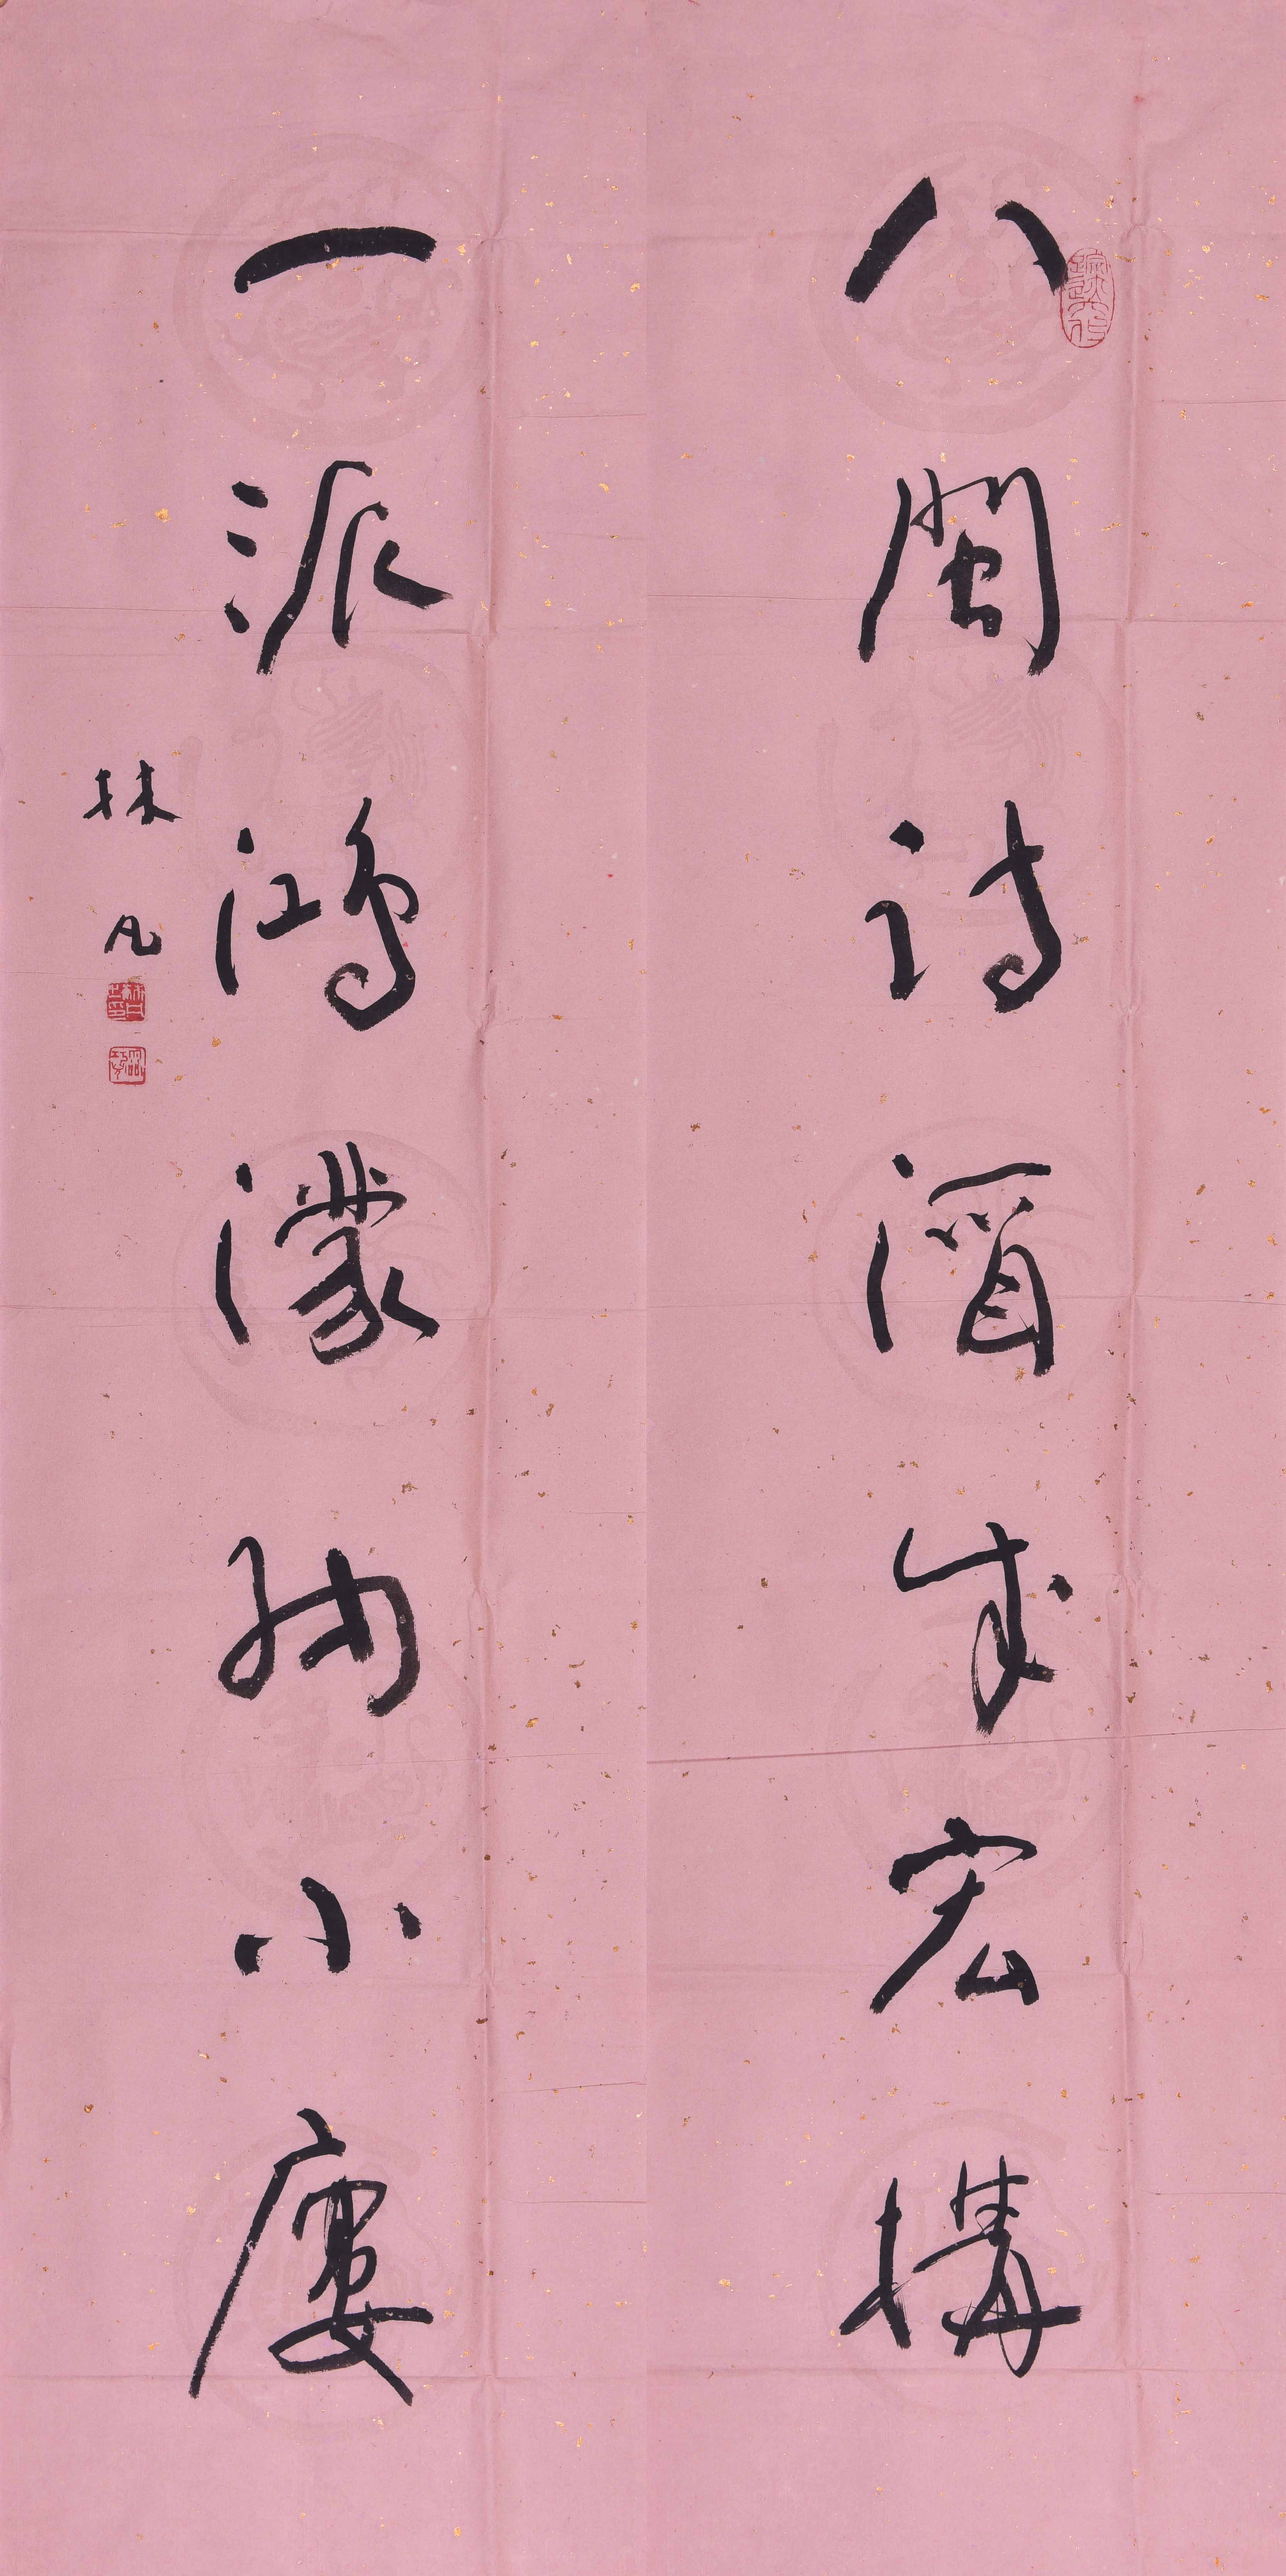 八閩詩酒成宏構
一派鴻濛納小廔
林凡